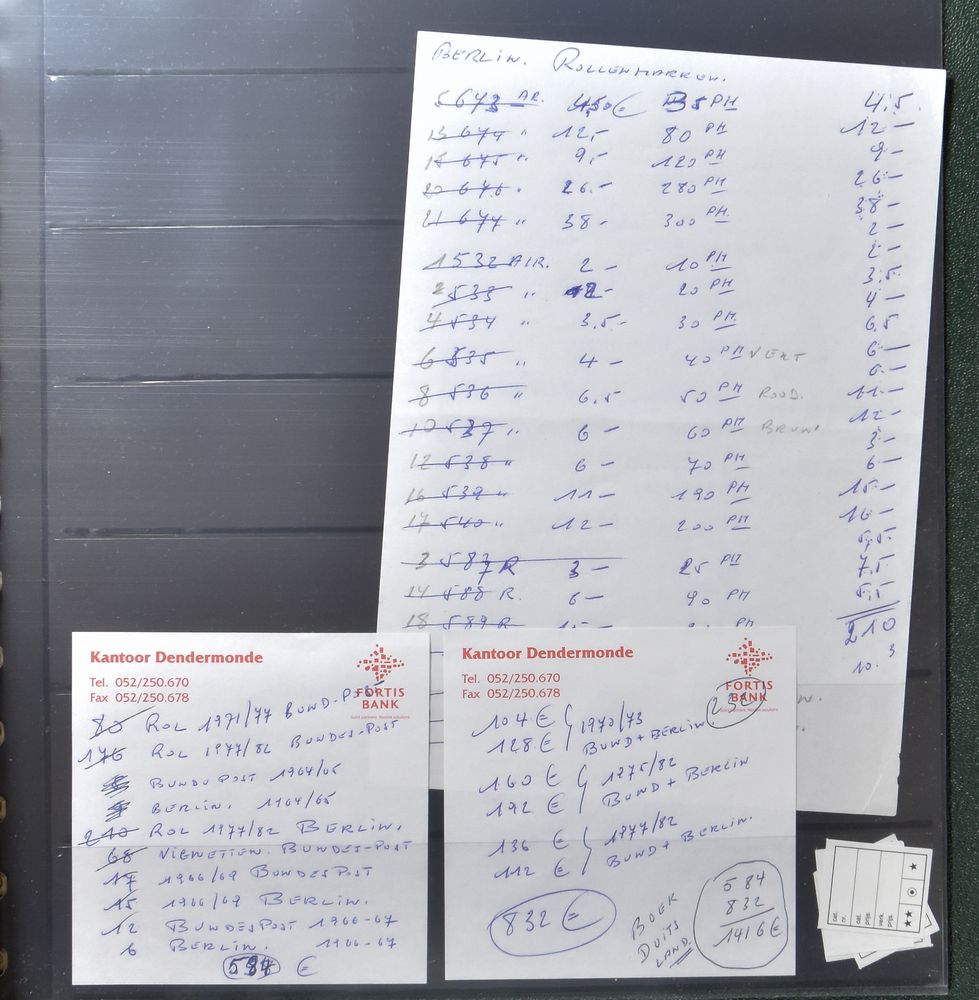 BERLIN. ROLLENMARKEN.
5 673 AR. 4,50 € 35 PH 4,5
13 674 " 12,- 80 PH 12 -
15 675 " 9,- 120 PH 9 -
20 676 " 26.- 280 PH 26 -
21 677 " 38 - 300 PH. 38 -
2 -
1 532 AIR. 2 - 10 PH 2 -
2 533 " 2 - 20 PH 3,5.
4 534 " 3,5.- 30 PH 4 -
6,5
6 535 " 4 - 40 PH VERT 6 -
6 -
8 536 " 6,5 50 PH ROOD. 11 -
10 537 " 6 - 60 PH BRUN. 12 -
3 -
12 538 " 6 - 70 PH 6 -
16 539 " 11 - 190 PH 15 -
17 540 " 12 - 200 PH 16 -
5,5.
3 587 R 3 - 25 PH 7,5
14 588 R. 6 - 90 PH 5,5
18 589 R 210
10.3
Kantoor Dendermonde
Tel. 052/250.670
Fax 052/250.678
FORTIS
BANK
Solid partners, flexible solutions
80 ROL 1971/77 BUND-POST
176 ROL 1977/82 BUNDES-POST
BUNDUPOST 1964/65
BERLIN. 1964/65
210 ROL 1977/82 BERLIN.
68 VIGNETTEN. BUNDES-POST
17 1966/69 BUNDESPOST
15 1966/69 BERLIN.
12 BUNDESPOST 1966-67
6 BERLIN. 1966-67
584 €
Kantoor Dendermonde
Tel. 052/250.670
Fax 052/250.678
FORTIS
BANK
Solid partners, flexible solutions
232
104 € 1970/73
128 € BUND + BERLIN
160 € 1975/82
192 € BUND + BERLIN
136 € 1977/82
112 € BUND + BERLIN.
832 €
BOEK
DUITS
LAND.
584
832
1416 €
cat. nr.
cat. prijs
verk. prijs